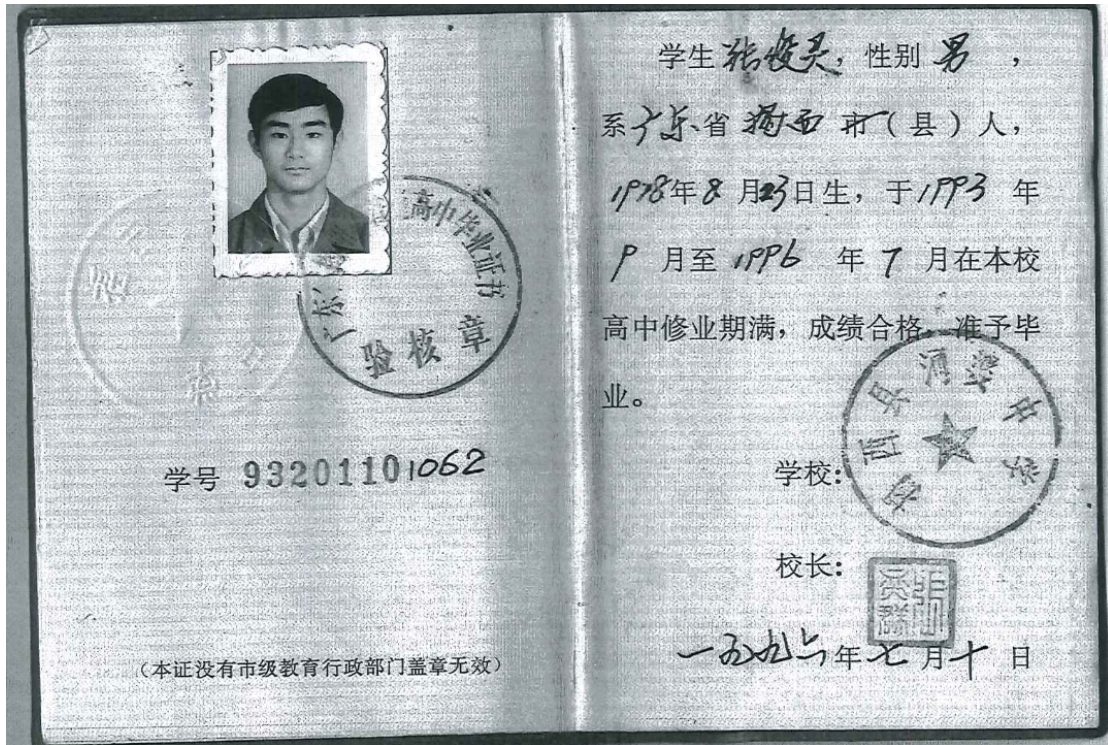 广东 高中毕业证书
验核章
学号 93201101062
（本证没有市级教育行政部门盖章无效）
学生张俊灵，性别 男 ，
系广东省揭西市（县）人，
1978年8月23日生，于1993年
9月至1996年7月在本校
高中修业期满，成绩合格，准予毕
业。
学校：
揭西县河婆中学
校长：
一九九六年七月十日